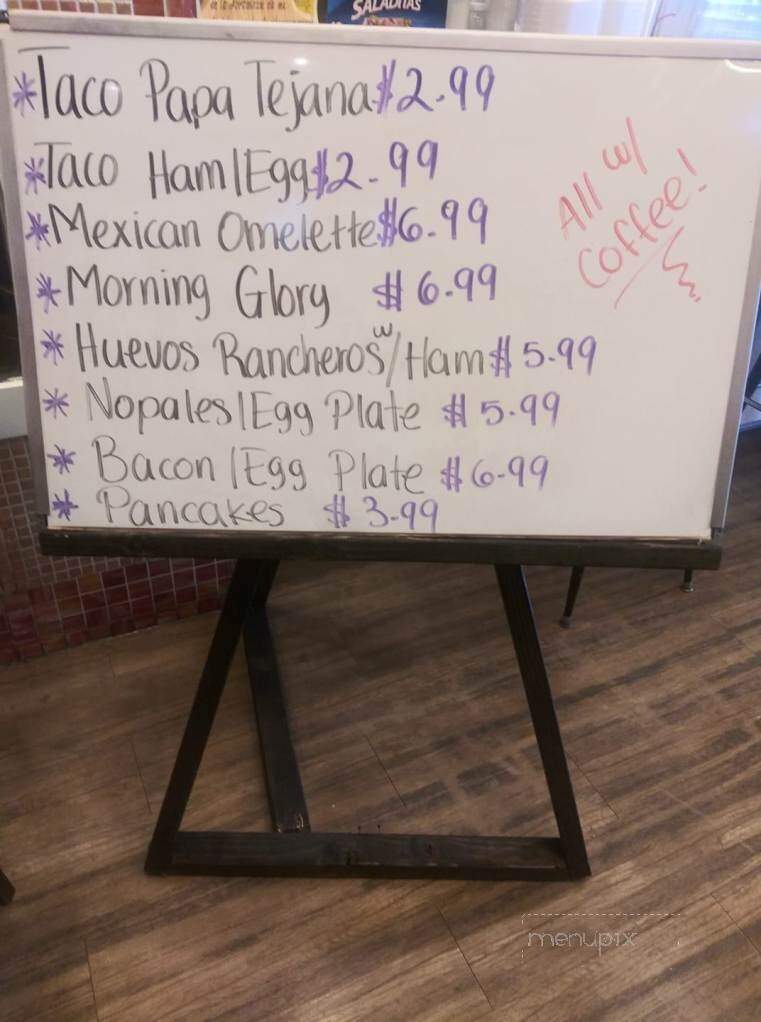 SALADITAS
*Taco Papa Tejana $2.99
*Taco Ham/Egg $2.99
*Mexican Omelette $6.99
*Morning Glory $6.99
*Huevos Rancheros w/Ham $5.99
*Nopales/Egg Plate $5.99
*Bacon/Egg Plate $6.99
*Pancakes $3.99
All w/
Coffee!
menupix